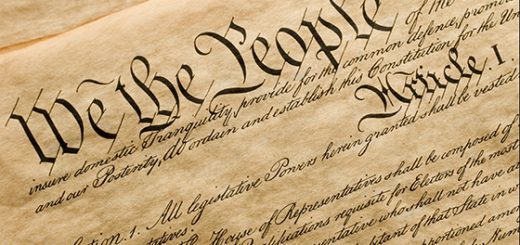 We the People of the
insure domestic Tranquility, provide for the common defence, promo
and our Posterity, do ordain and establish this Constitution for the Un
Article I.
Section. 1. All legislative Powers herein granted shall be vested
House of Representatives shall be composed of
Qualifications requisite for Electors of the most
Representative who shall not have
Inhabitant of that State in w
apportioned amon